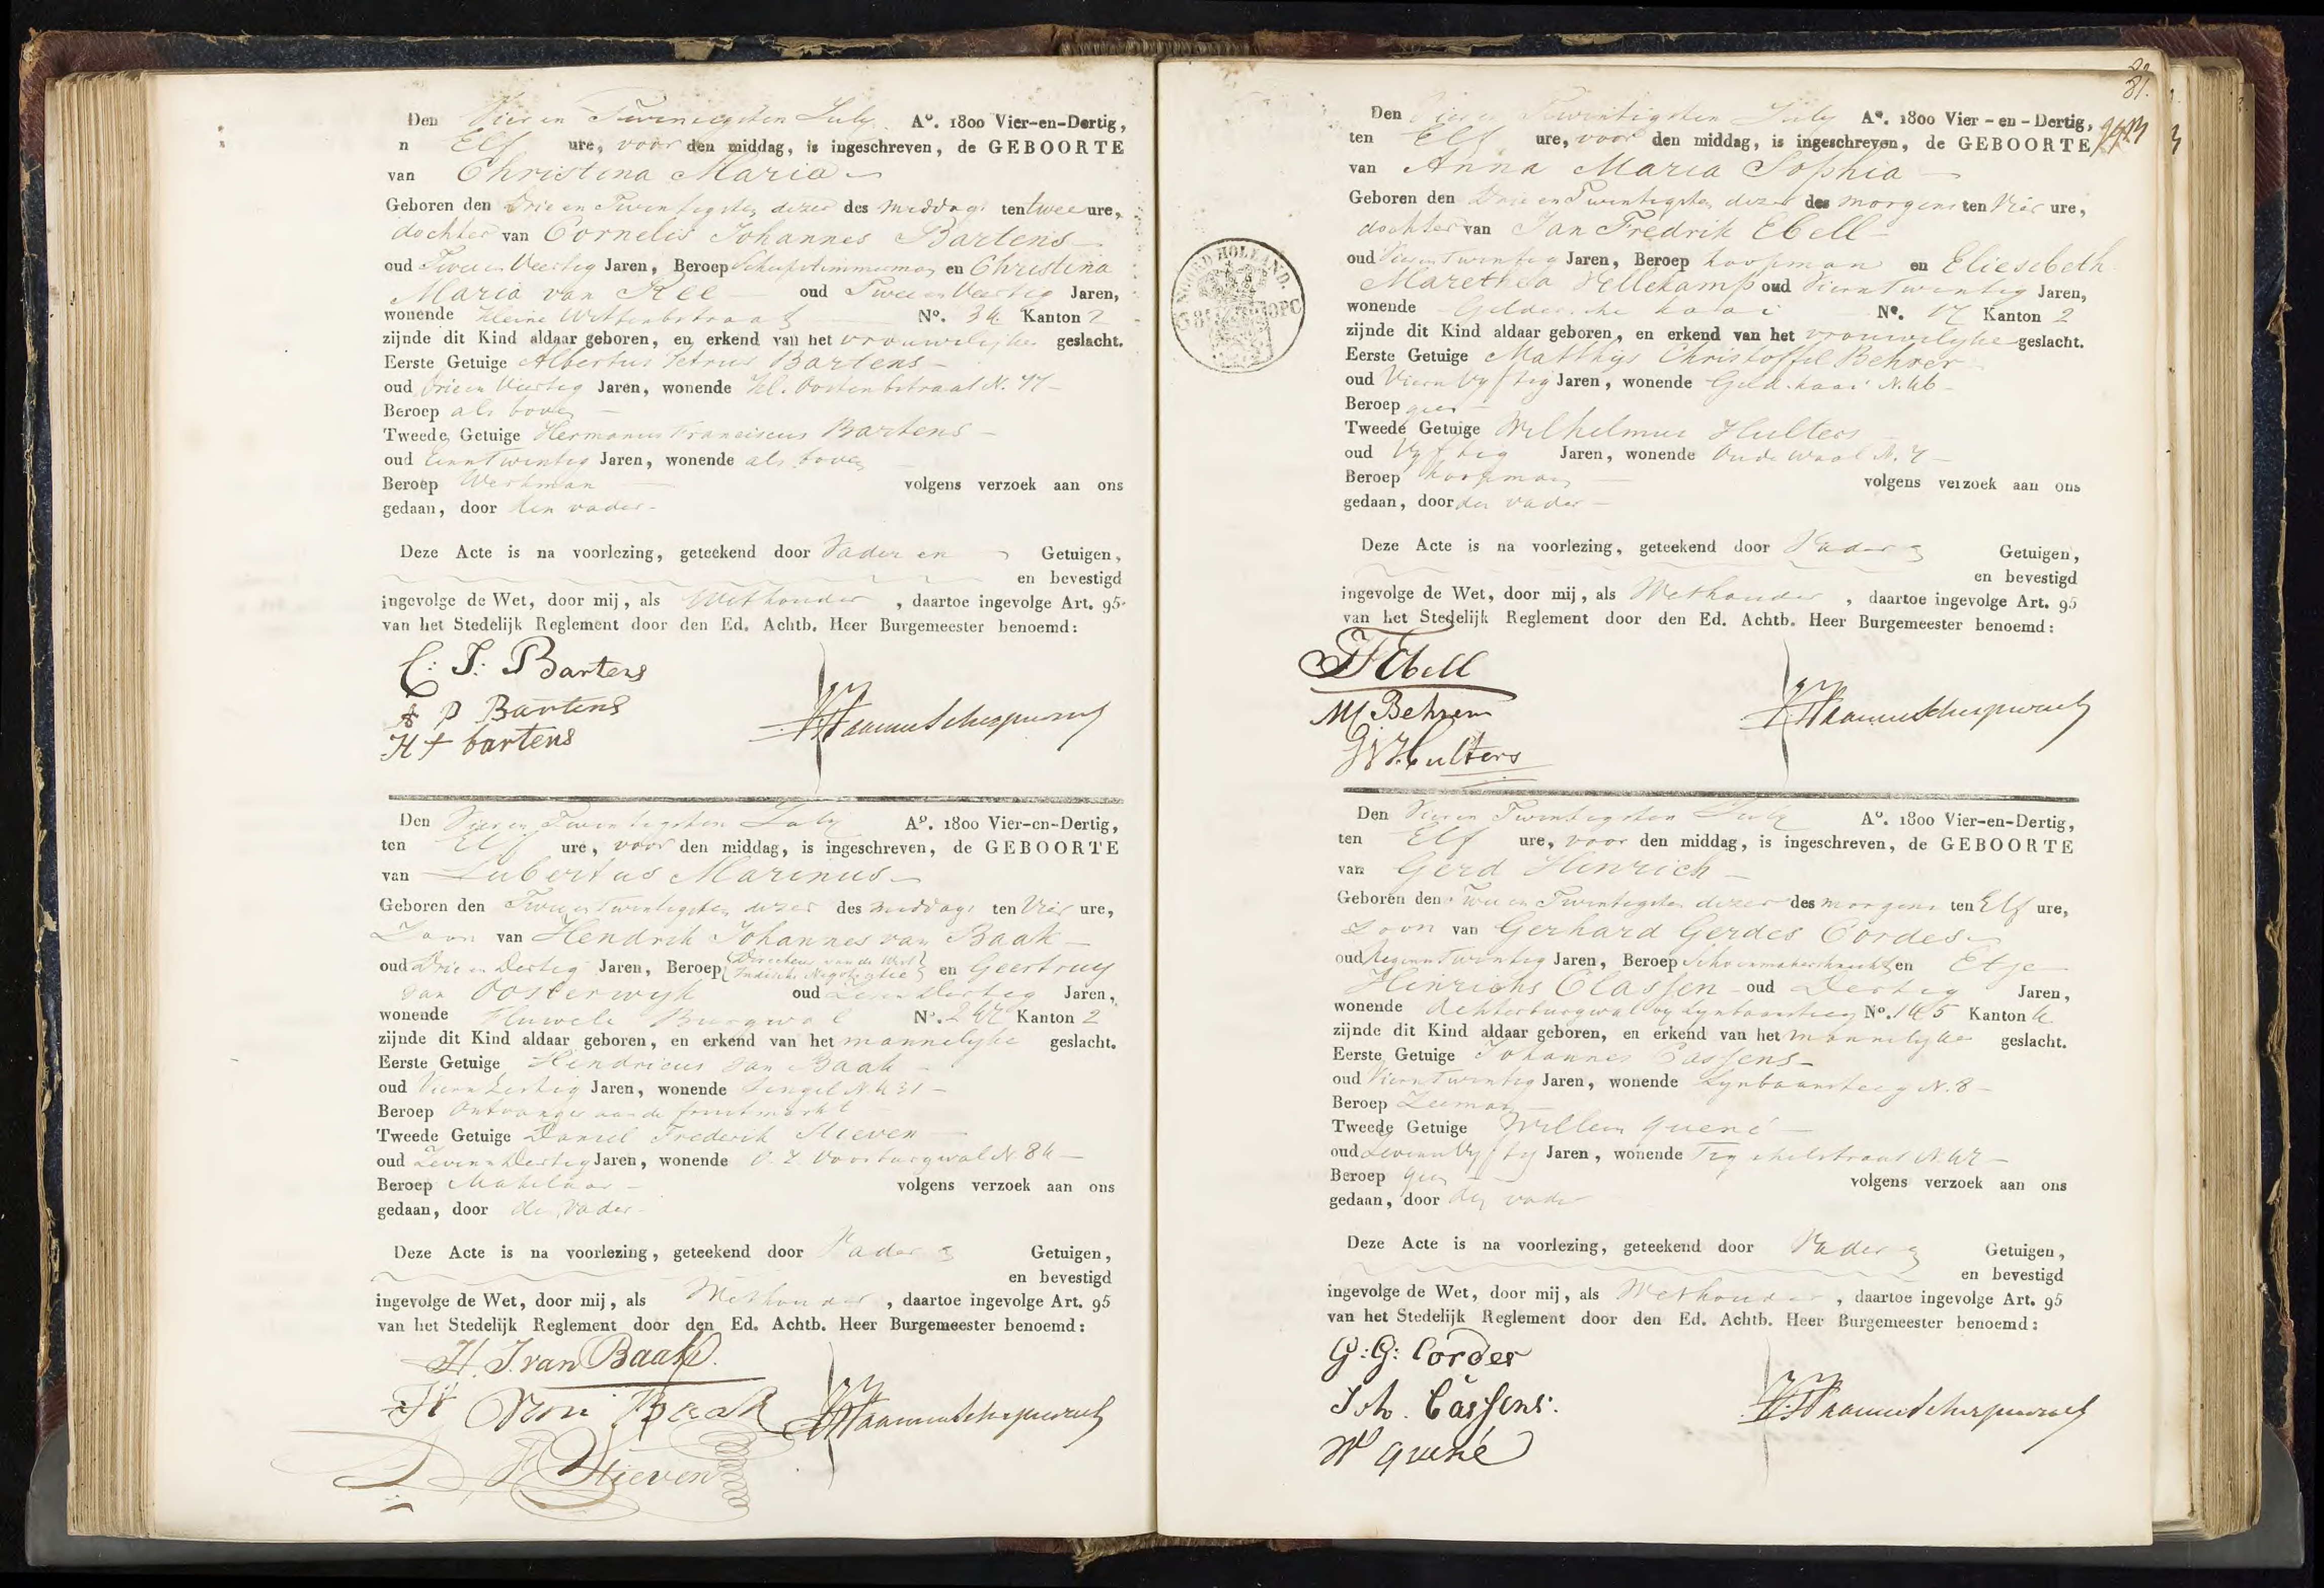 Den Vier en Twintigsten July A°. 1800 Vier-en-Dertig,
n Elf ure, voor den middag, is ingeschreven, de GEBOORTE
van Christina Maria
Geboren den Drie en Twintigsten dezer des middags ten twee ure,
dochter van Cornelis Johannes Bartens
oud Twee en Veertig Jaren, Beroep Scheepstimmerman en Christina
Maria van Ree oud Twee en Veertig Jaren,
wonende Kleine Wittenbstraat N°. 34 Kanton 2
zijnde dit Kind aldaar geboren, en erkend van het vrouwelijke geslacht.
Eerste Getuige Albertus Petrus Bartens
oud Drie en Veertig Jaren, wonende Kl. Oostenbstraat N. 77
Beroep als boven
Tweede Getuige Hermanus Franciscus Bartens
oud Een en Twintig Jaren, wonende als boven
Beroep Werkman volgens verzoek aan ons
gedaan, door den vader
Deze Acte is na voorlezing, geteekend door Vader en Getuigen,
en bevestigd
ingevolge de Wet, door mij, als Wethouder, daartoe ingevolge Art. 95
van het Stedelijk Reglement door den Ed. Achtb. Heer Burgemeester benoemd:
C: J: Bartens
A P Bartens
H f bartens
Den Vier en Twintigsten July A°. 1800 Vier-en-Dertig,
ten Elf ure, voor den middag, is ingeschreven, de GEBOORTE
van Lubertus Marinus
Geboren den Twee en Twintigsten dezer des middags ten Vier ure,
Zoon van Hendrik Johannes van Baak
oud Drie en Dertig Jaren, Beroep Directeur van de West Indische Negotiatie en Geertruy
van Oosterwyk oud Zeven en Dertig Jaren,
wonende Fluwele Burgwal N°. 242 Kanton 2
zijnde dit Kind aldaar geboren, en erkend van het mannelijke geslacht.
Eerste Getuige Hendricus van Baak
oud Jaren, wonende Singel N. 431
Beroep Ontvanger aan de fruitmarkt
Tweede Getuige Daniel Frederik Stieven
oud Zeven en Dertig Jaren, wonende O. Z. Voorburgwal N. 84
Beroep Makelaar volgens verzoek aan ons
gedaan, door den Vader
Deze Acte is na voorlezing, geteekend door Vader en Getuigen,
en bevestigd
ingevolge de Wet, door mij, als Wethouder, daartoe ingevolge Art. 95
van het Stedelijk Reglement door den Ed. Achtb. Heer Burgemeester benoemd:
H. J. van Baak.
Van Baak
D F Stieven
81.
Den Vier en Twintigsten July A°. 1800 Vier-en-Dertig,
ten Elf ure, voor den middag, is ingeschreven, de GEBOORTE
van Anna Maria Sophia
Geboren den Drie en Twintigsten dezer des morgens ten Vier ure,
dochter van Jan Fredrik Ebell
oud Vier en Twintig Jaren, Beroep koopman en Eliesebeth
Maretha Vellekamp oud Vier en Twintig Jaren,
wonende Geldersche kaai N°. 17 Kanton 2
zijnde dit Kind aldaar geboren, en erkend van het vrouwelyke geslacht.
Eerste Getuige Matthijs Christoffel Behrer
oud Vier en Vyftig Jaren, wonende Geld. kaai N. 46
Beroep geen
Tweede Getuige Wilhelmus Hulters
oud Vyftig Jaren, wonende Oude Waal N. 4
Beroep koopman volgens verzoek aan ons
gedaan, door den vader
Deze Acte is na voorlezing, geteekend door Vader en Getuigen,
en bevestigd
ingevolge de Wet, door mij, als Wethouder, daartoe ingevolge Art. 95
van het Stedelijk Reglement door den Ed. Achtb. Heer Burgemeester benoemd:
NOORD HOLLAND.
JF Ebell
M Behren
Hulters
Den Vier en Twintigsten July A°. 1800 Vier-en-Dertig,
ten Elf ure, voor den middag, is ingeschreven, de GEBOORTE
van Gerd Hinrich
Geboren den Twee en Twintigsten dezer des morgens ten Elf ure,
Zoon van Gerhard Gerdes Cordes
oud Negen en Twintig Jaren, Beroep Schoenmakersknecht en Etje
Hinrichs Classen oud Dertig Jaren,
wonende Achterburgwal by Lynbaansteeg N°. 145 Kanton 4
zijnde dit Kind aldaar geboren, en erkend van het mannelyke geslacht.
Eerste Getuige Johannes Cassens
oud Vier en Twintig Jaren, wonende Lynbaansteeg N. 8
Beroep Zeeman
Tweede Getuige Willem Quené
oud Zeven en Vyftig Jaren, wonende Tigchelstraat N. 42
Beroep geen volgens verzoek aan ons
gedaan, door den vader
Deze Acte is na voorlezing, geteekend door Vader en Getuigen,
en bevestigd
ingevolge de Wet, door mij, als Wethouder, daartoe ingevolge Art. 95
van het Stedelijk Reglement door den Ed. Achtb. Heer Burgemeester benoemd:
G: G: Cordes
Joh. Cassens.
W quené